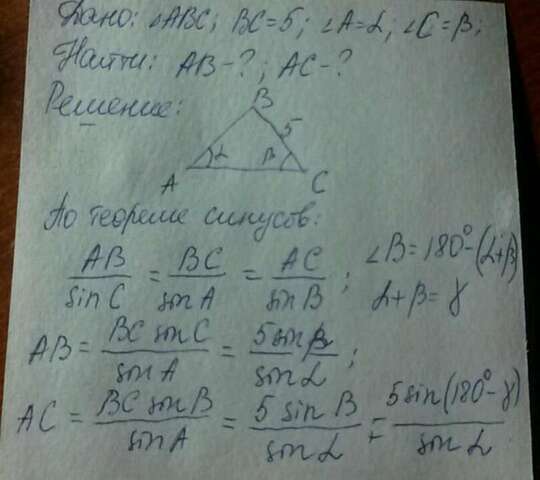 Дано: ∠ABC; BC=5; ∠A=α; ∠C=β;
Найти: AB-?; AC-?
Решение:
B
5
α β
A C
По теореме синусов:
AB/sinC = BC/sinA = AC/sinB; ∠B=180°-(α+β)
α+β=γ
AB = BC sinC/sinA = 5sinβ/sinα;
AC = BC sinB/sinA = 5 sinB/sinα = 5sin(180°-γ)/sinα